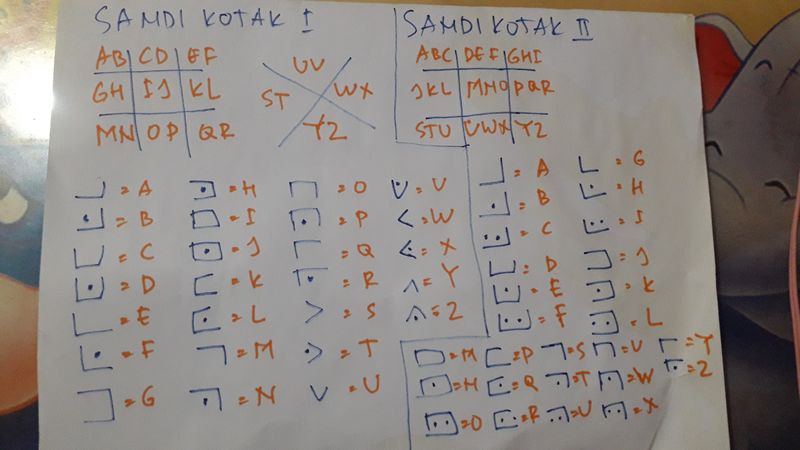 SAMDI KOTAK I
AB CD EF
GH IJ KL
MN OP QR
UV
ST WX
YZ
= A = H = O = V
= B = I = P = W
= C = J = Q = X
= D = K = R = Y
= E = L = S = Z
= F = M = T
= G = N = U
SAMDI KOTAK II
ABC DEF GHI
JKL MNO PQR
STU VWX YZ
= A = G
= B = H
= C = I
= D = J
= E = K
= F = L
= M = P = S = V = Y
= N = Q = T = W = Z
= O = R = U = X